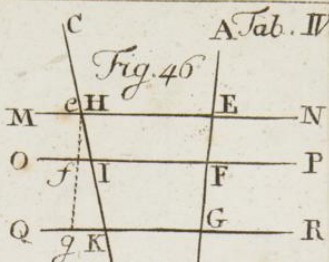 C A Tab. IV
Fig. 46
M e H E N
O f I F P
Q g K G R